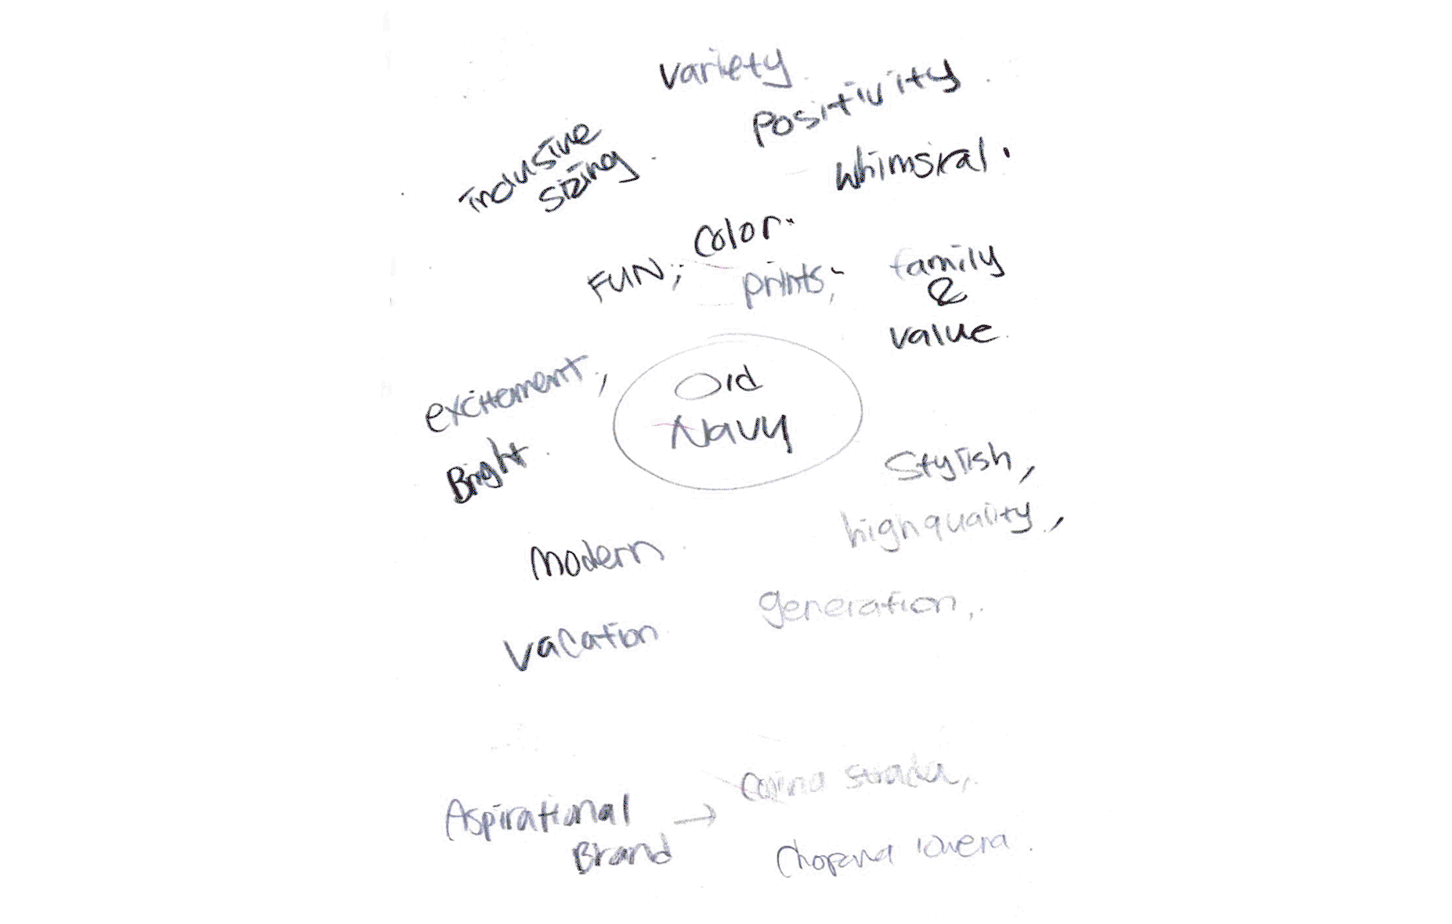 variety
positivity
inclusive
sizing
whimsical.
color..
FUN;
prints;
family
&
value.
excitement,
Bright.
Old
Navy
Stylish,
high quality,
Modern
generation,
vacation
Aspirational
Brand →
Collina Strada,
Chopova Lowena.